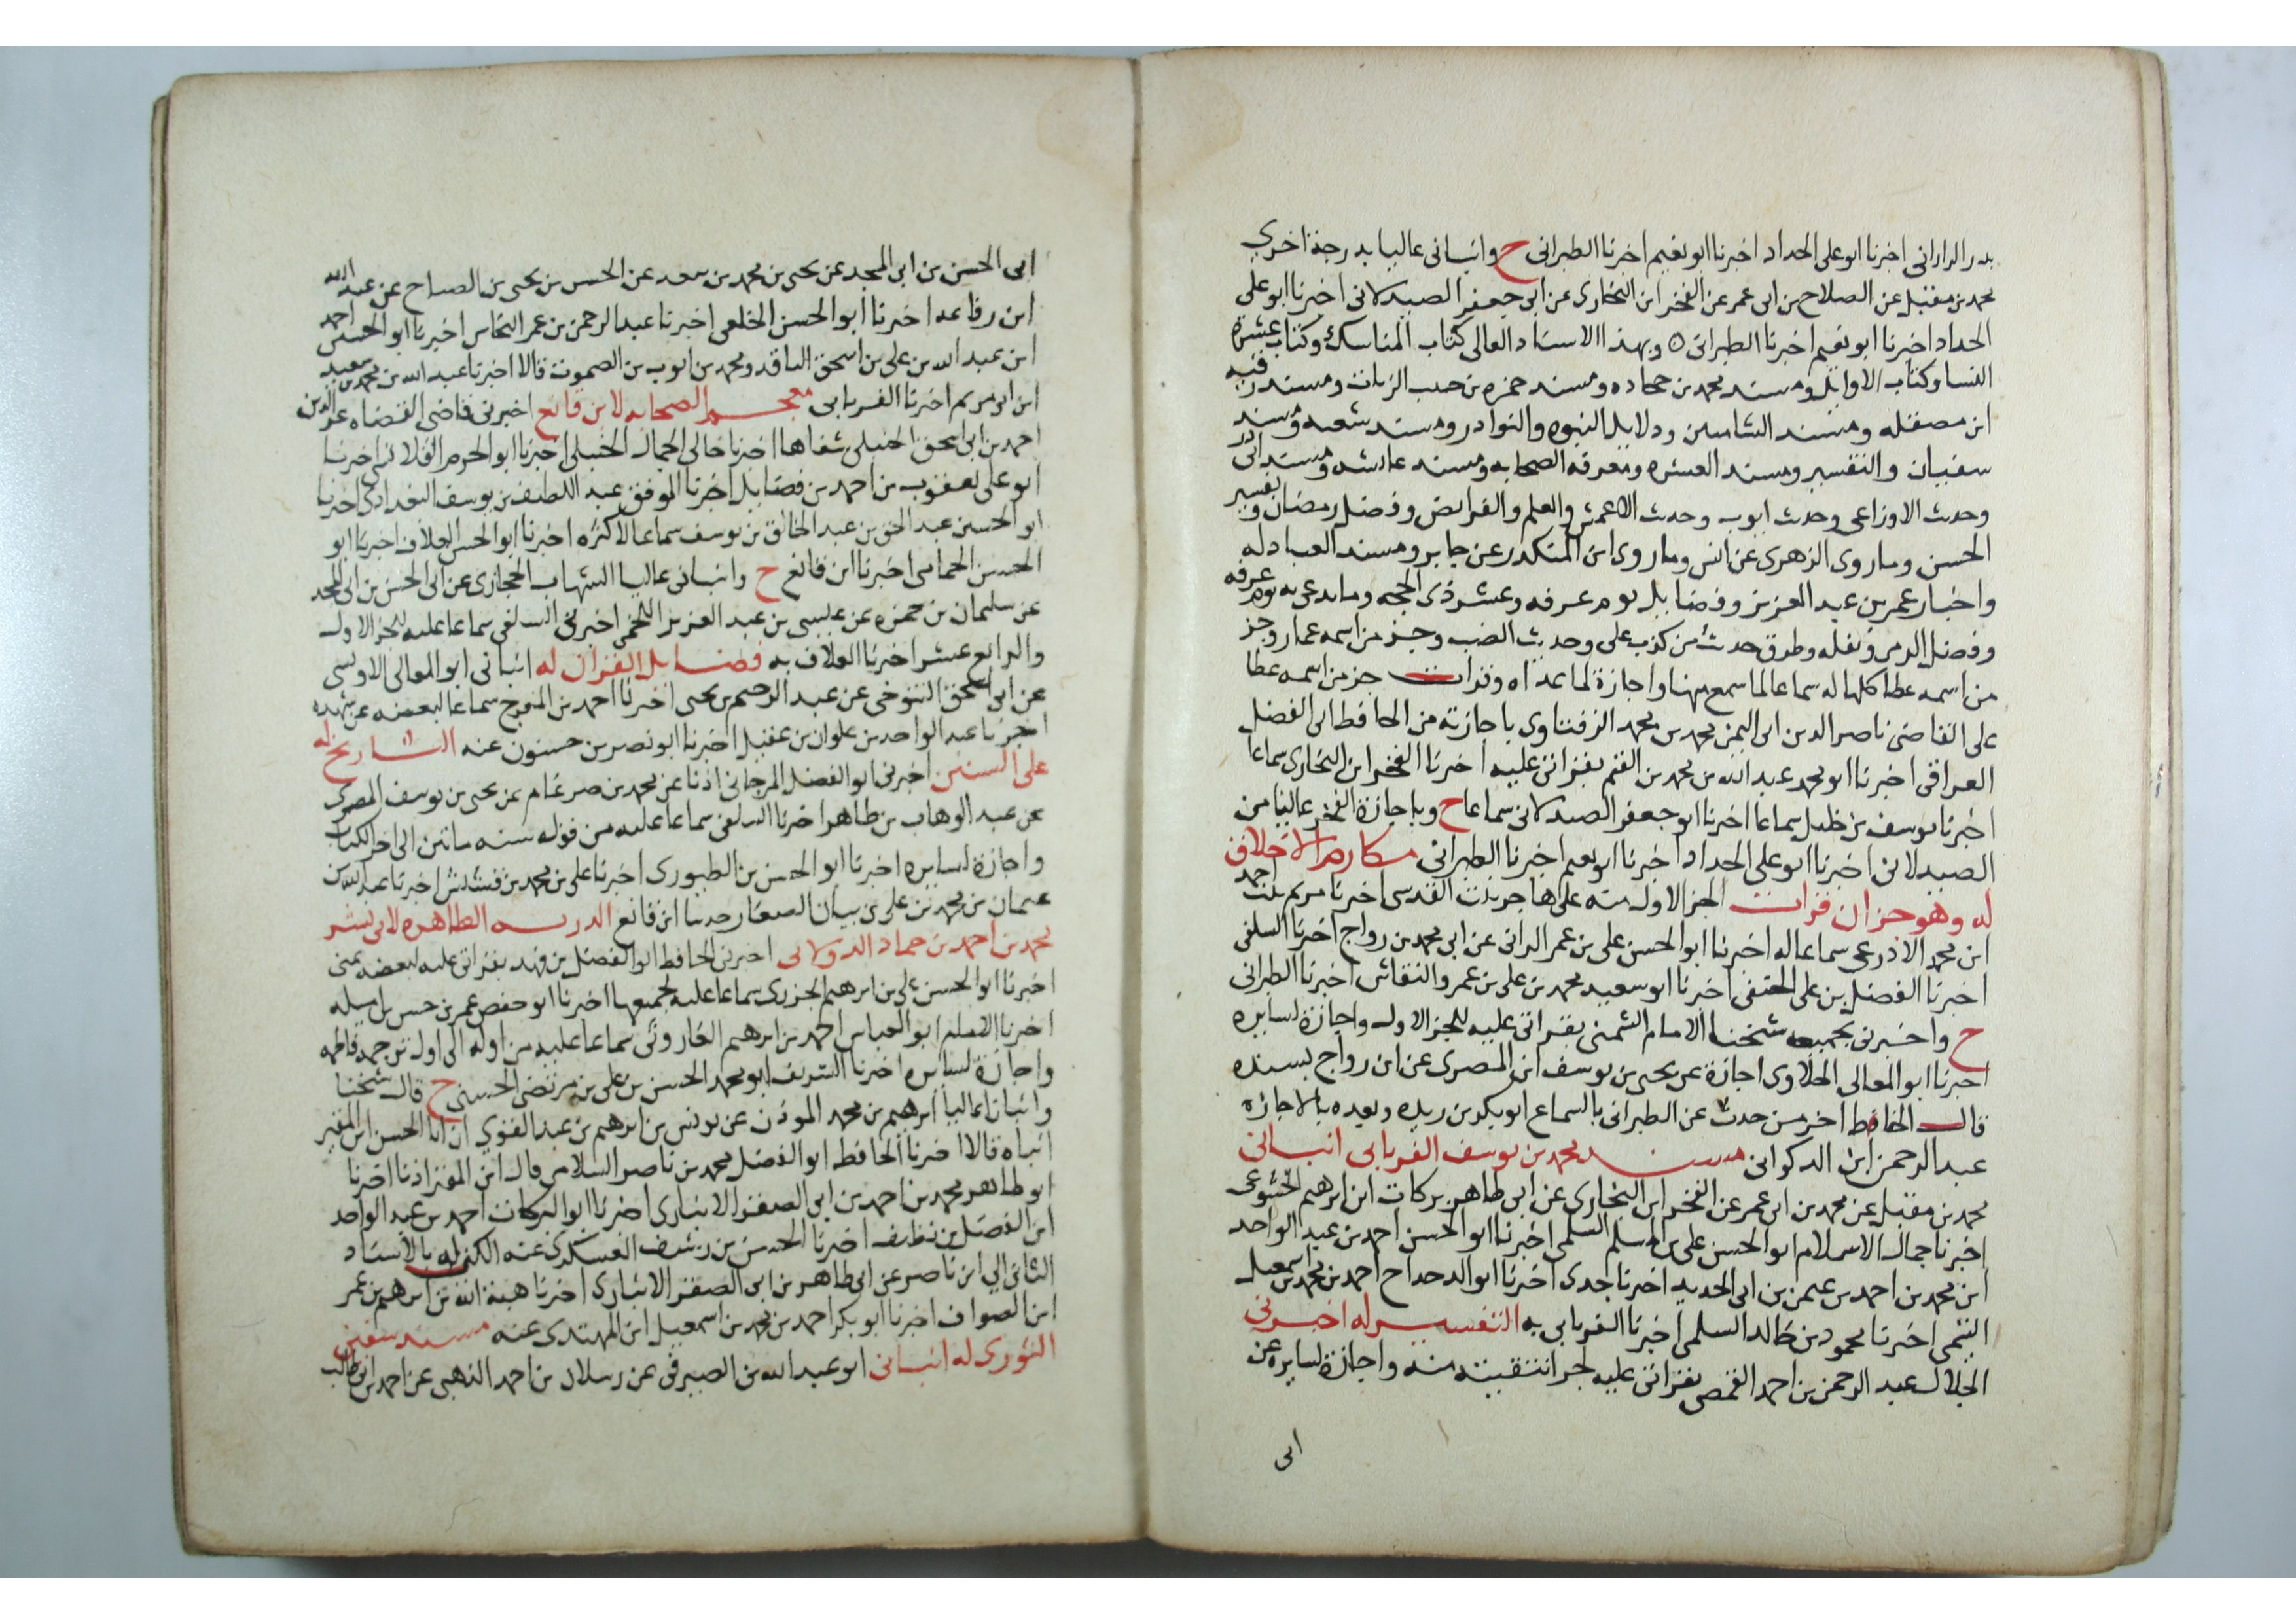 بدر الراراني اخبرنا ابو على الحداد اخبرنا ابو نعيم اخبرنا الطبراني ح وانبانى عاليا بدرجة اخرى
محمد بن مقبل عن الصلاح بن ابى عمر عن الفخر ابن البخارى عن ابى جعفر الصيدلانى اخبرنا ابو على
الحداد اخبرنا ابو نعيم اخبرنا الطبرانى ٥ وبهذا الاسناد العالى كتاب المناسك وكتاب عشرة
النسا وكتاب الاوايل ومسند محمد بن جحاده ومسند حمزه بن حبيب الزيات ومسند رقبه
ابن مصقله ومسند الشاميين ودلايل النبوه والنوادر ومسند شعبه ومسند
سفيان والتفسير ومسند العشره ومعرفه الصحابه ومسند عايشه ومسند ابى
وحدث الاوزاعى وحدث ايوب وحدث الاعمش والعلم والفرايض وفضل رمضان وتفسير
الحسن وما روى الزهرى عن انس وما روى ابن المنكدر عن جابر ومسند العبادله
واخبار عمر بن عبد العزيز وفضايل يوم عرفه وعشر ذى الحجه وما يدعى به يوم عرفه
وفضل الرمى ونقله وطرق حدث من كذب على وحديث الضب وجز من اسمه عمار وجز
من اسمه عطا كلها له سماعا لما سمع منها واجازة لما عداه وقرات جز من اسمه عطا
على القاضى ناصر الدين ابى اليمن محمد بن محمد الزفتاوى باجازته من الحافظ ابى الفضل
العراقى اخبرنا ابو محمد عبد الله بن محمد بن القيم بقراتى عليه اخبرنا الفخر ابن البخارى سماعا
اخبرنا يوسف بن خليل سماعا اخبرنا ابو جعفر الصيدلانى سماعا ح وباجازة الفخر عاليا من
الصيدلانى اخبرنا ابو على الحداد اخبرنا ابو نعيم اخبرنا الطبرانى مكارم الاخلاق
له وهو جزان قرات الجز الاول منه على هاجر بنت القدسى اخبرنا مريم بنت احمد
ابن محمد الاذرعى سماعا له اخبرنا ابو الحسن على بن عمر الوانى عن ابى محمد بن رواج اخبرنا السلفى
اخبرنا الفضل بن على الحنفى اخبرنا ابو سعيد محمد بن على بن عمرو النقاش اخبرنا الطبرانى
ح واخبرنى بجميعه شيخنا الامام الشمنى بقراتى عليه للجز الاول واجازة لسايره
اخبرنا ابو المعالى الحلاوى اجازة عن يحيى بن يوسف ابن المصرى عن ابن رواج بسنده
قال الحافظ اخر من حدث عن الطبرانى بالسماع ابو بكر بن ريذه وبعده بالاجازه
عبد الرحمن ابن الذكوانى مسند محمد بن يوسف الفريابى انبانى
محمد بن مقبل عن محمد بن ابى عمر عن الفخر ابن البخارى عن ابى طاهر بركات ابن ابرهيم الخشوعى
اخبرنا جمال الاسلام ابو الحسن على بن المسلم السلمى اخبرنا ابو الحسن احمد بن عبد الواحد
ابن محمد بن احمد بن عثمن بن ابى الحديد اخبرنا جدى اخبرنا ابو الدحداح احمد بن محمد بن اسمعيل
التيمى اخبرنا محمود بن خالد السلمى اخبرنا الفريابى به التفسير له اخبرنى
الجلال عبد الرحمن بن احمد القمصى بقراتى عليه لجز انتقيته منه واجازة لسايره عن
ابى
ابى الحسن بن ابى المجد عن يحيى بن محمد بن سعد عن الحسن بن يحيى بن الصباح عن عبد الله
ابن رفاعه اخبرنا ابو الحسن الخلعى اخبرنا عبد الرحمن بن عمر النحاس اخبرنا ابو الحسن احمد
ابن عبد الله بن على بن اسحق الناقد ومحمد بن ايوب بن الصموت قالا اخبرنا عبد الله بن محمد بن سعيد
ابن ابى مريم اخبرنا الفريابى معجم الصحابه لابن قانع اخبرنى قاضى القضاه عز الدين
احمد بن ابى اسحق الحنبلى شفاها اخبرنا خالى الجمال الحنبلى اخبرنا ابو الحرم القلانسى اخبرنا
ابو على يعقوب بن احمد بن فضايل اخبرنا الموفق عبد اللطيف بن يوسف البغدادى اخبرنا
ابو الحسين عبد الحق بن عبد الخالق بن يوسف سماعا لاكثره اخبرنا ابو الحسن العلاف اخبرنا ابو
الحسن الحمامى اخبرنا ابن قانع ح وانبانى عاليا الشهاب الحجازى عن ابى الحسن بن ابى المجد
عن سليمان بن حمزه عن عيسى بن عبد العزيز اللخمى اخبرنى السلفى سماعا عليه للجز الاول
والرابع عشر اخبرنا العلاف به فضايل القران له انبانى ابو المعالى الاوسى
عن ابى اسحق التنوخى عن عبد الرحيم بن يحيى اخبرنا احمد بن المفرج سماعا لبعضه عن شهده
اخبرنا عبد الواحد بن علوان بن عقيل اخبرنا ابو نصر بن حسنون عنه التاريخ له
على السنين اخبرنى ابو الفضل المرجانى اذنا عن محمد بن ضرغام عن يحيى بن يوسف المصرى
عن عبد الوهاب بن طاهر اخبرنا السلفى سماعا عليه من قوله سنه مائتين الى اخر الكتاب
واجازة لسايره اخبرنا ابو الحسن بن الطيورى اخبرنا على بن محمد بن قشيش اخبرنا عبد الله بن
عثمان بن محمد بن على بن بيان الصفار حدثنا ابن قانع الدريه الطاهره لابى بشر
محمد بن احمد بن حماد الدولابى اخبرنى الحافظ ابو الفضل بن فهد بقراتى عليه لبعضه بمنى
اخبرنا ابو الحسن على بن ابرهيم الجزرى سماعا عليه لجميعها اخبرنا ابو حفص عمر بن حسن بن اميله
اخبرنا الامام ابو العباس احمد بن ابرهيم الفاروثى سماعا عليه من اوله الى اول ترجمه فاطمه
واجازة لسايره اخبرنا الشريف ابو محمد الحسن بن على بن مرتضى الحسنى ح قال شيخنا
وانبانا عاليا ابرهيم بن محمد الموذن عن يونس بن ابرهيم بن عبد القوي ان ابا الحسن ابن المقير
انباه قالا اخبرنا الحافظ ابو الفضل محمد بن ناصر السلامى قال ابن المقير اذنا اخبرنا
ابو طاهر محمد بن احمد بن ابى الصقر الانبارى اخبرنا ابو البركات احمد بن عبد الواحد
ابن الفضل بن نظيف اخبرنا الحسن بن رشيق العسكرى عنه الكنى له بالاسناد
الثانى الي ابن ناصر عن ابى طاهر بن ابى الصقر الانبارى اخبرنا هبة الله بن ابرهيم بن عمر
ابن الصواف اخبرنا ابو بكر احمد بن محمد بن اسمعيل ابن المهندس عنه مسند سفين
الثورى له انبانى ابو عبد الله بن الصيرفى عن رسلان بن احمد الذهبى عن احمد بن ابى طالب